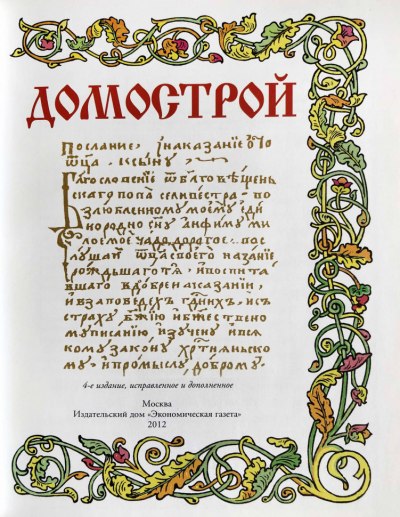 ДОМОСТРОЙ
Послание, и наказание ѿ
ѿца к сыну
Благословение ѿ благовѣщень
скаго попа селивестра во
злюбленному моему еди
нородно сну анфиму ми
лое мое чадо дорогое. пос
лушай ѿца своего наꙁание
рождьшаго тѧ, и воспита
вшаго в добре наꙁании,
и в заповедех гдних, и съ
страху бжию и бжествено
му писанию изучену и всѧ
кому закону хртиѧньско
му и промыслу доброму
4-е издание, исправленное и дополненное
Москва
Издательский дом «Экономическая газета»
2012